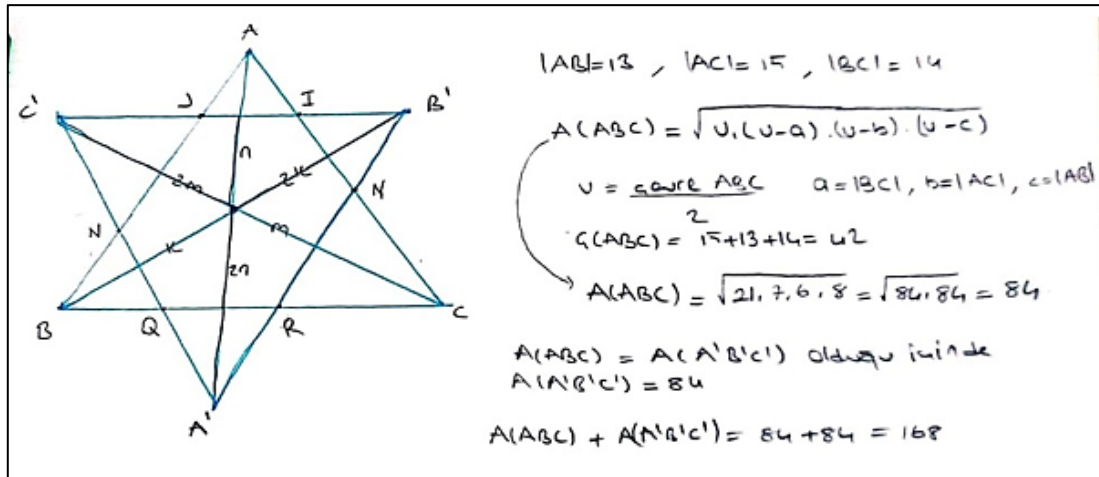 A
C'
J
I
B'
n
2m
2k
N
Y
k
m
2n
B
Q
R
C
A'
|AB|=13 , |AC|=15 , |BC|=14
A(ABC) = √u.(u-a).(u-b).(u-c)
u = çevre ABC / 2 a=|BC|, b=|AC|, c=|AB|
Ç(ABC) = 15+13+14=42
A(ABC) = √21.7.6.8 = √84.84 = 84
A(ABC) = A(A'B'C') olduğu için de
A(A'B'C') = 84
A(ABC) + A(A'B'C') = 84+84 = 168